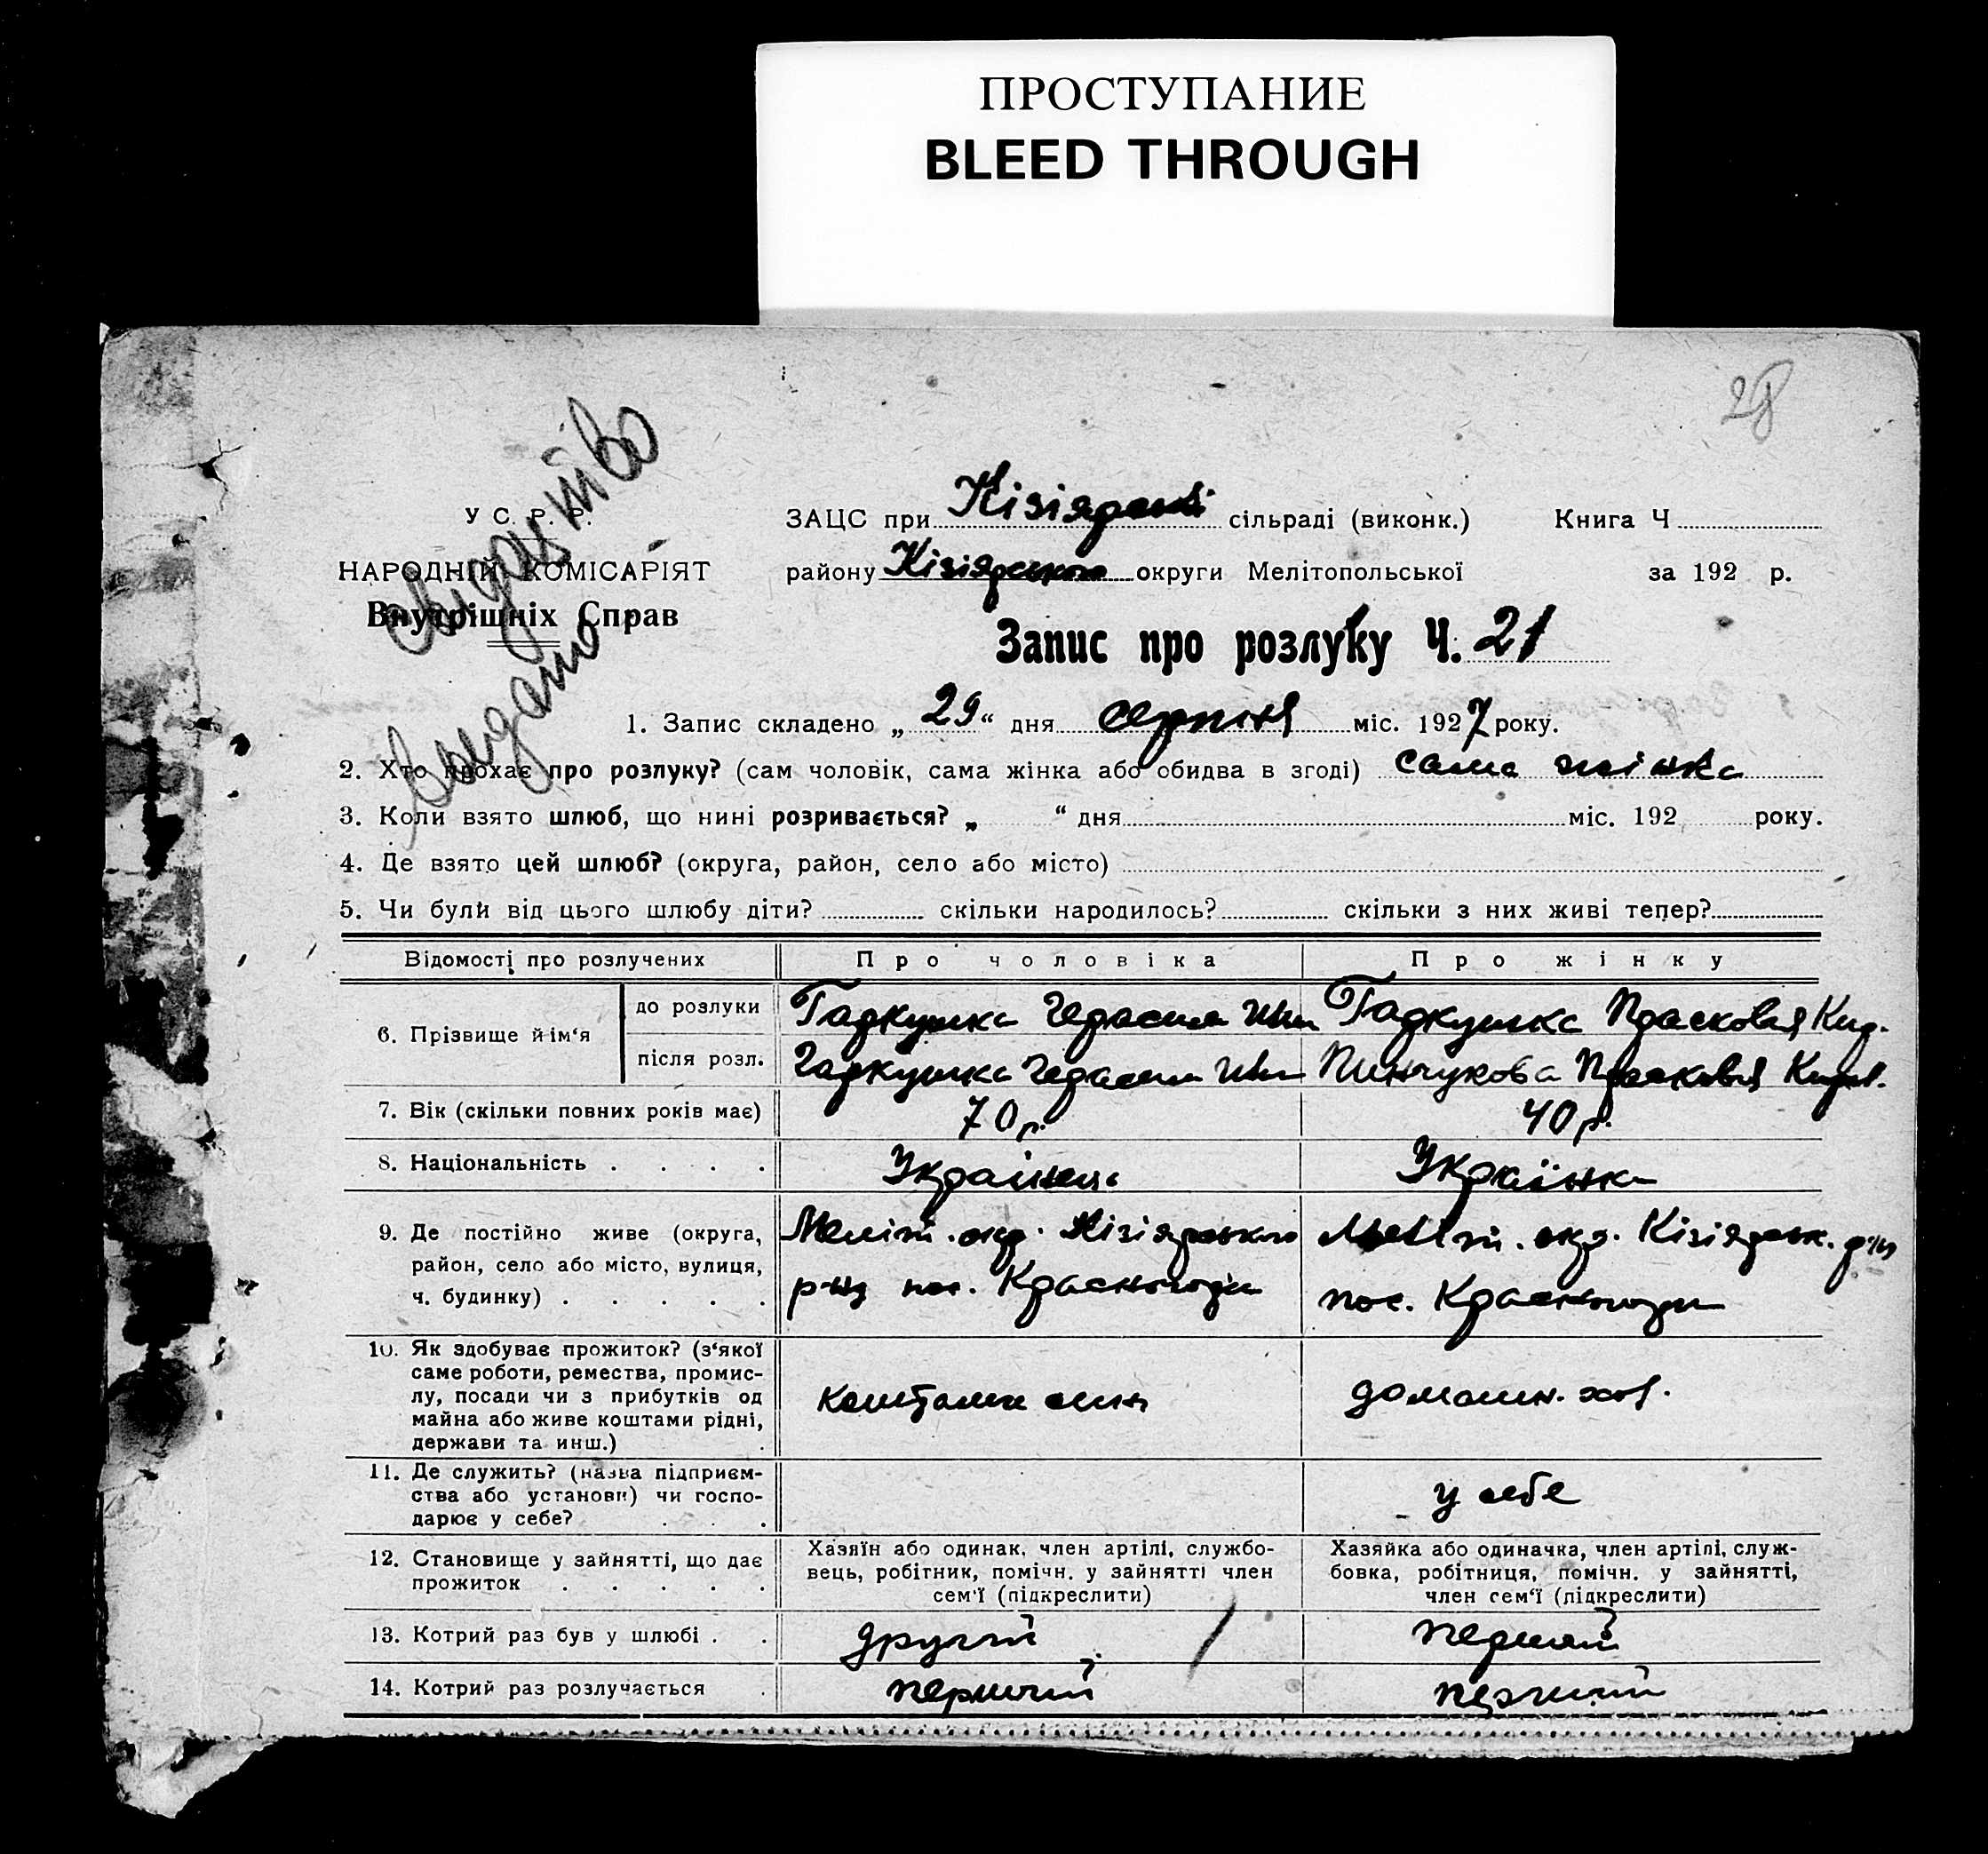 ПРОСТУПАНИЕ
BLEED THROUGH
28
Свидоцтво
Видано
У С. Р. Р.
НАРОДНІЙ КОМІСАРІЯТ
Внутрішніх Справ
ЗАЦС при Кізіярські сільраді (виконк.) Книга Ч
району Кізіярського округи Мелітопольської за 192 р.
Запис про розлуку Ч. 21
1. Запис складено „ 29 “ дня серпня міс. 1927 року.
2. Хто прохає про розлуку? (сам чоловік, сама жінка або обидва в згоді) сама жінка
3. Коли взято шлюб, що нині розривається? „ “ дня міс. 192 року.
4. Де взято цей шлюб? (округа, район, село або місто)
5. Чи були від цього шлюбу діти? скільки народилось? скільки з них живі тепер?
Відомості про розлучених Про чоловіка Про жінку
6. Прізвище й ім‘я
до розлуки Гаркушка Герасим Гаркушка Прасковья Кир.
після розл. Гаркушка Герасим Пинчукова Прасковья Кирил.
7. Вік (скільки повних років має) 70 р. 40 р.
8. Національність . . . . Українець Українка
9. Де постійно живе (округа,
район, село або місто, вулиця,
ч. будинку) . . . . .
Меліт. окр. Кізіярського
р-ну пос.
Меліт. окр. Кізіярськ. р-ну
пос.
10. Як здобуває прожиток? (з‘якої
саме роботи, ремества, промис-
лу, посади чи з прибутків од
майна або живе коштами рідні,
держави та инш.) .
коштами сина
домашн. хоз.
11. Де служить? (назва підприєм-
ства або установи) чи госпо-
дарює у себе? . .
у себе
12. Становище у зайнятті, що дає
прожиток . . . . .
Хазяїн або одинак, член артілі, службо-
вець, робітник, помічн. у зайнятті член
сем‘ї (підкреслити)
Хазяйка або одиначка, член артілі, служ-
бовка, робітниця, помічн. у зайнятті,
член сем‘ї (підкреслити)
13. Котрий раз був у шлюбі . . другий первий
14. Котрий раз розлучається . перший перший